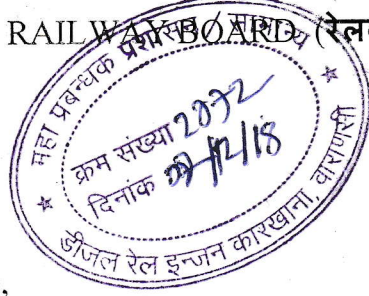 RAILWAY BOARD (रेलव
महा प्रबन्धक प्रशासन
क्रम संख्या 2072
दिनांक /12/18
डीजल रेल इन्जन कारखाना, वाराणसी
,